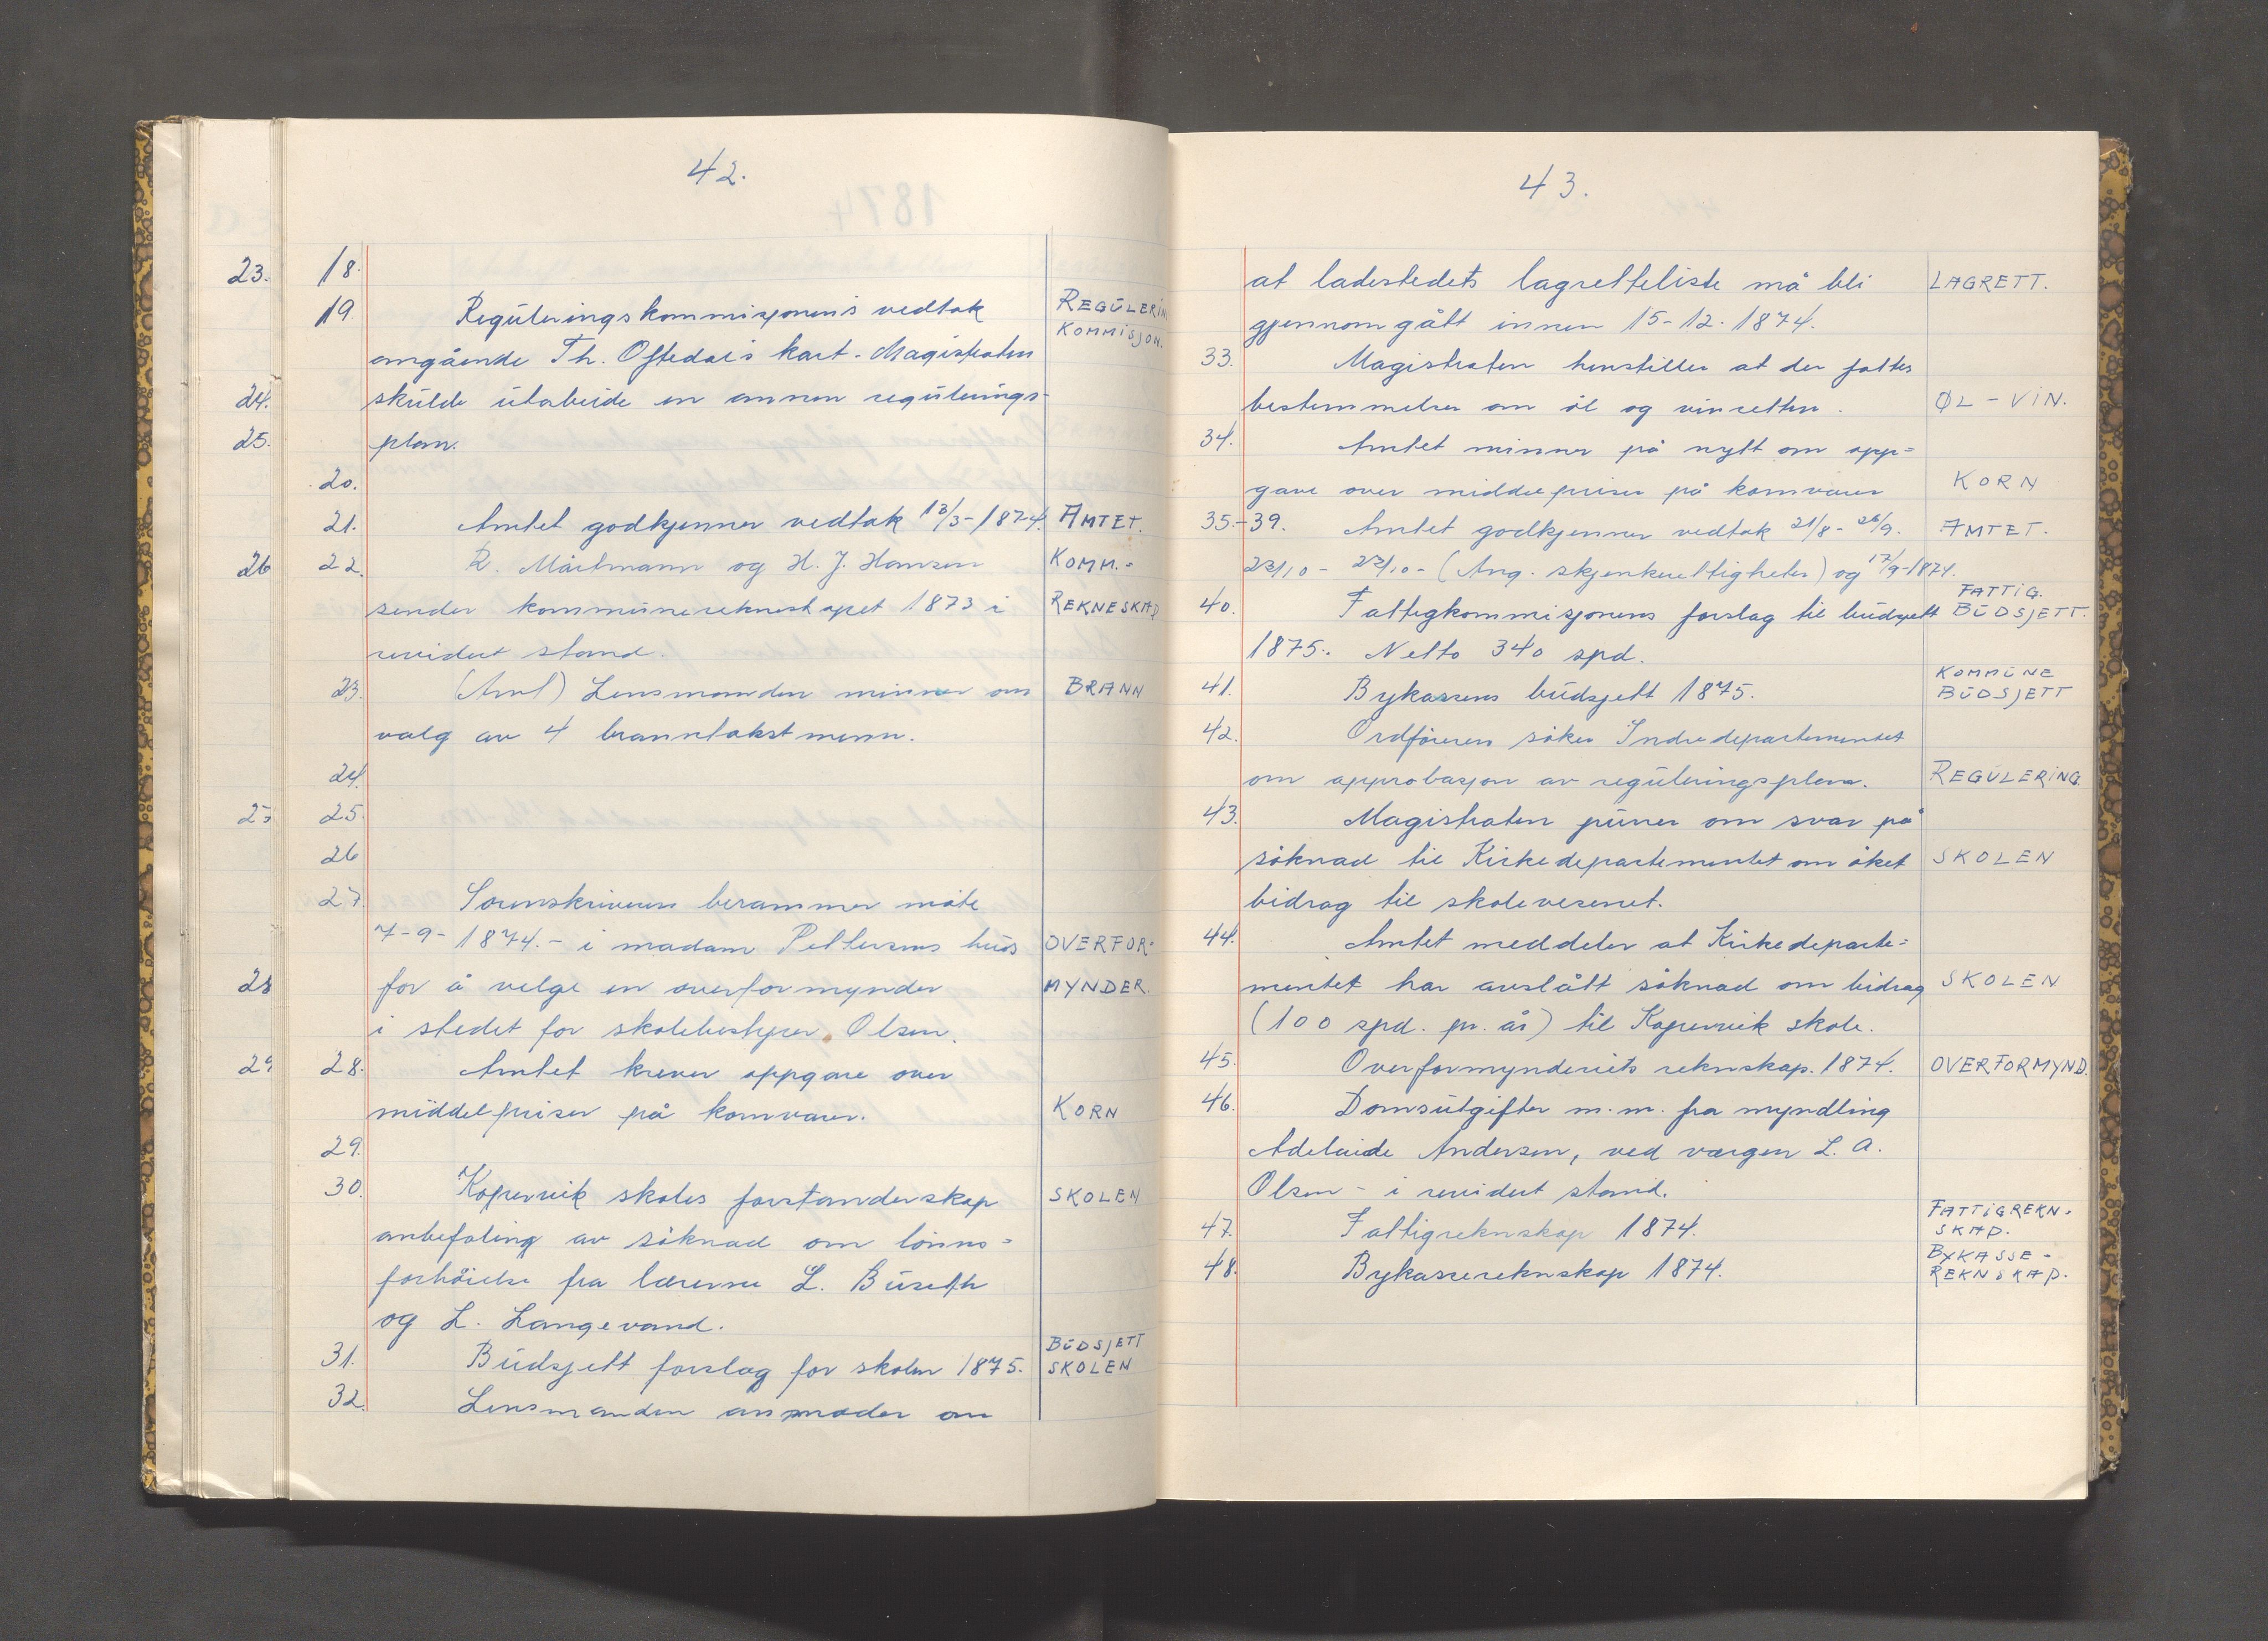 42.
23. 18.
19. Reguleringskommisjonens vedtak REGULERIN
KOMMISJON.
angående Th. Oftedal's kart. Magistraten
24. skulde utarbeide en annen regulerings-
25. plan.
20.
21. Amtet godkjenner vedtak 13/3-1874. AMTET.
26 22. R. og H. J. Hansen KOMM.-
sender kommunerekneskapet 1873 i REKNESKAP
revidert stand.
23. (Amt) Lensmanden minner om BRANN
valg av 4 branntakstmenn.
24.
25.
26
27. Sorenskriveren berammer møte
7-9-1874.- i madam Pettersens hus OVERFOR-
28 for å velge en overformynder MYNDER.
i stedet for skolebestyrer Olsen.
29 28. Amtet krever oppgave over
middelpriser på kornvarer. KORN
29.
30. Kopervik skoles forstanderskap SKOLEN
anbefaling av søknad om lønns=
forhøielse fra lærerne L. Buseth
og L. Langevand.
BUDSJETT
31. Budsjett forslag for skolen 1875. SKOLEN
32. Lensmanden anmoder om
43.
at ladestedets lagretteliste må bli LAGRETT.
gjennomgått innen 15-12-1874.
33. Magistraten henstiller at der fattes
bestemmelser om øl og vinretten. ØL-VIN.
34. Amtet minner på nytt om opp=
gave over middelpriser på kornvarer KORN
35.-39. Amtet godkjenner vedtak 21/8- 26/9. AMTET.
23/10- 23/10- (Ang. skjenkerettigheter) og 17/9-1874.
FATTIG.
40. Fattigkommisjonens forslag til budsjett BUDSJETT.
1875. Netto 340 spd.
KOMMUNE
41. Bykassens budsjett 1875. BUDSJETT
42. Ordføreren søker Indredepartementet
om approbasjon av reguleringsplan. REGULERING.
43. Magistraten purrer om svar på
søknad til Kirkedepartementet om øket SKOLEN
bidrag til skolevesenet.
44. Amtet meddeler at Kirkedeparte=
mentet har avslått søknad om bidrag SKOLEN
(100 spd. pr. år) til Kopervik skole.
45. Overformynderiets reknskap. 1874. OVERFORMYND.
46. Domsutgifter m.m. fra myndling
Adelaide Andersen, ved værgen L. A.
Olsen - i revidert stand.
FATTIGREKN-
47. Fattigreknskap 1874. SKAP.
BYKASSE-
48. Bykassereknskap 1874. REKNSKAP.